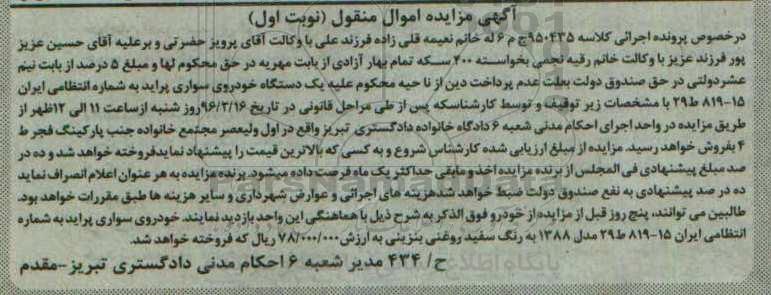 آگهی مزایده اموال منقول (نوبت اول)
درخصوص پرونده اجرائی کلاسه ۹۵۰۴۳۵ج م ۶ له خانم نعیمه قلی زاده فرزند علی با وکالت آقای پرویز حضرتی و برعلیه آقای حسین عزیز
پور فرزند عزیز با وکالت خانم رقیه نجمی بخواسته ۴۰۰ سکه تمام بهار آزادی از بابت مهریه در حق محکوم لها و مبلغ ۵ درصد از بابت نیم
عشر دولتی در حق صندوق دولت بعلت عدم پرداخت دین از نا حیه محکوم علیه یک دستگاه خودروی سواری پراید به شماره انتظامی ایران
۱۵-۸۱۹ ط۲۹ با مشخصات زیر توقیف و توسط کارشناسکه پس از طی مراحل قانونی در تاریخ ۹۶/۲/۱۶روز شنبه ازساعت ۱۱ الی ۱۲ظهر از
طریق مزایده در واحد اجرای احکام مدنی شعبه ۶ دادگاه خانواده دادگستری تبریز واقع در اول ولیعصر مجتمع خانواده جنب پارکینگ فجر ط
۴ بفروش خواهد رسید. مزایده از مبلغ ارزیابی شده کارشناس شروع و به کسی که بالاترین قیمت را پیشنهاد نماید فروخته خواهد شد و ده در
صد مبلغ پیشنهادی فی المجلس از برنده مزایده اخذ و مابقی حداکثر یک ماه فرصت داده میشود. برنده مزایده به هر عنوان اعلام انصراف نماید
ده در صد پیشنهادی به نفع صندوق دولت ضبط خواهد شدهزینه های اجرائی و عوارض شهرداری و سایر هزینه ها طبق مقررات خواهد بود.
طالبین می توانند، پنج روز قبل از مزایده از خودرو فوق الذکر به شرح ذیل با هماهنگی این واحد بازدید نمایند. خودروی سواری پراید به شماره
انتظامی ایران ۱۵-۸۱۹ ط۲۹ مدل ۱۳۸۸ به رنگ سفید روغنی بنزینی به ارزش ۷۸/۰۰۰/۰۰۰ ریال که فروخته خواهد شد.
ح/ ۴۳۴ مدیر شعبه ۶ احکام مدنی دادگستری تبریز-مقدم